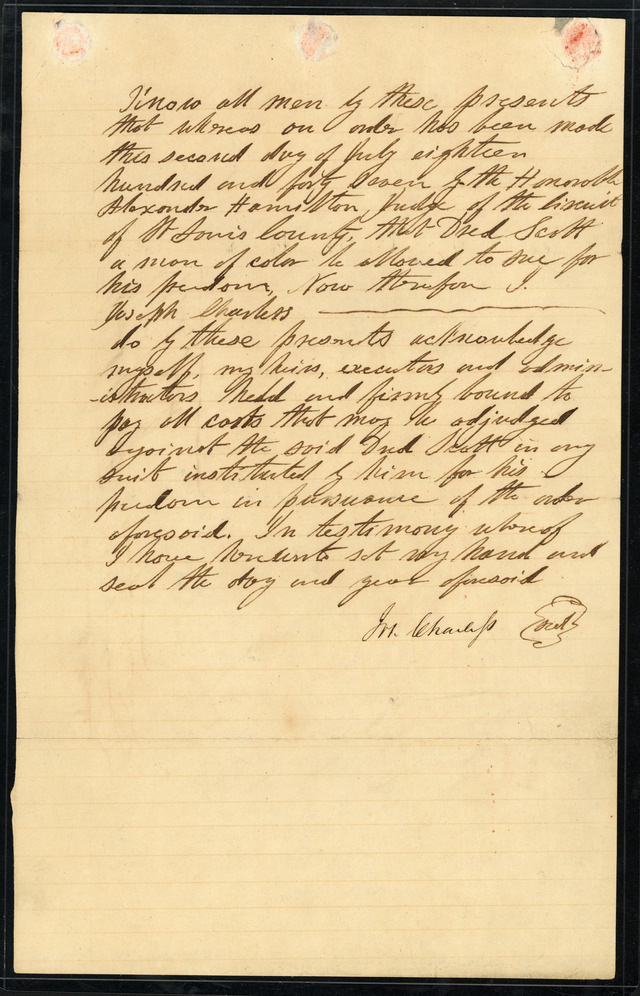 Know all men by these presents
that whereas an order has been made
this second day of July eighteen
hundred and forty Seven by the Honorable
Alexander Hamilton Judge of the Circuit
of St Louis County, that Dred Scott
a man of color be allowed to sue for
his freedom, Now therefore I.
Joseph Charless
do by these presents acknowledge
myself, my heirs, executors and admin-
-istrators held and firmly bound to
pay all costs that may be adjudged
against the said Dred Scott in any
suit instituted by him for his
freedom in pursuance of the order
aforesaid. In testimony whereof
I have hereunto set my hand and
seal the day and year aforesaid
Jos. Charless seal